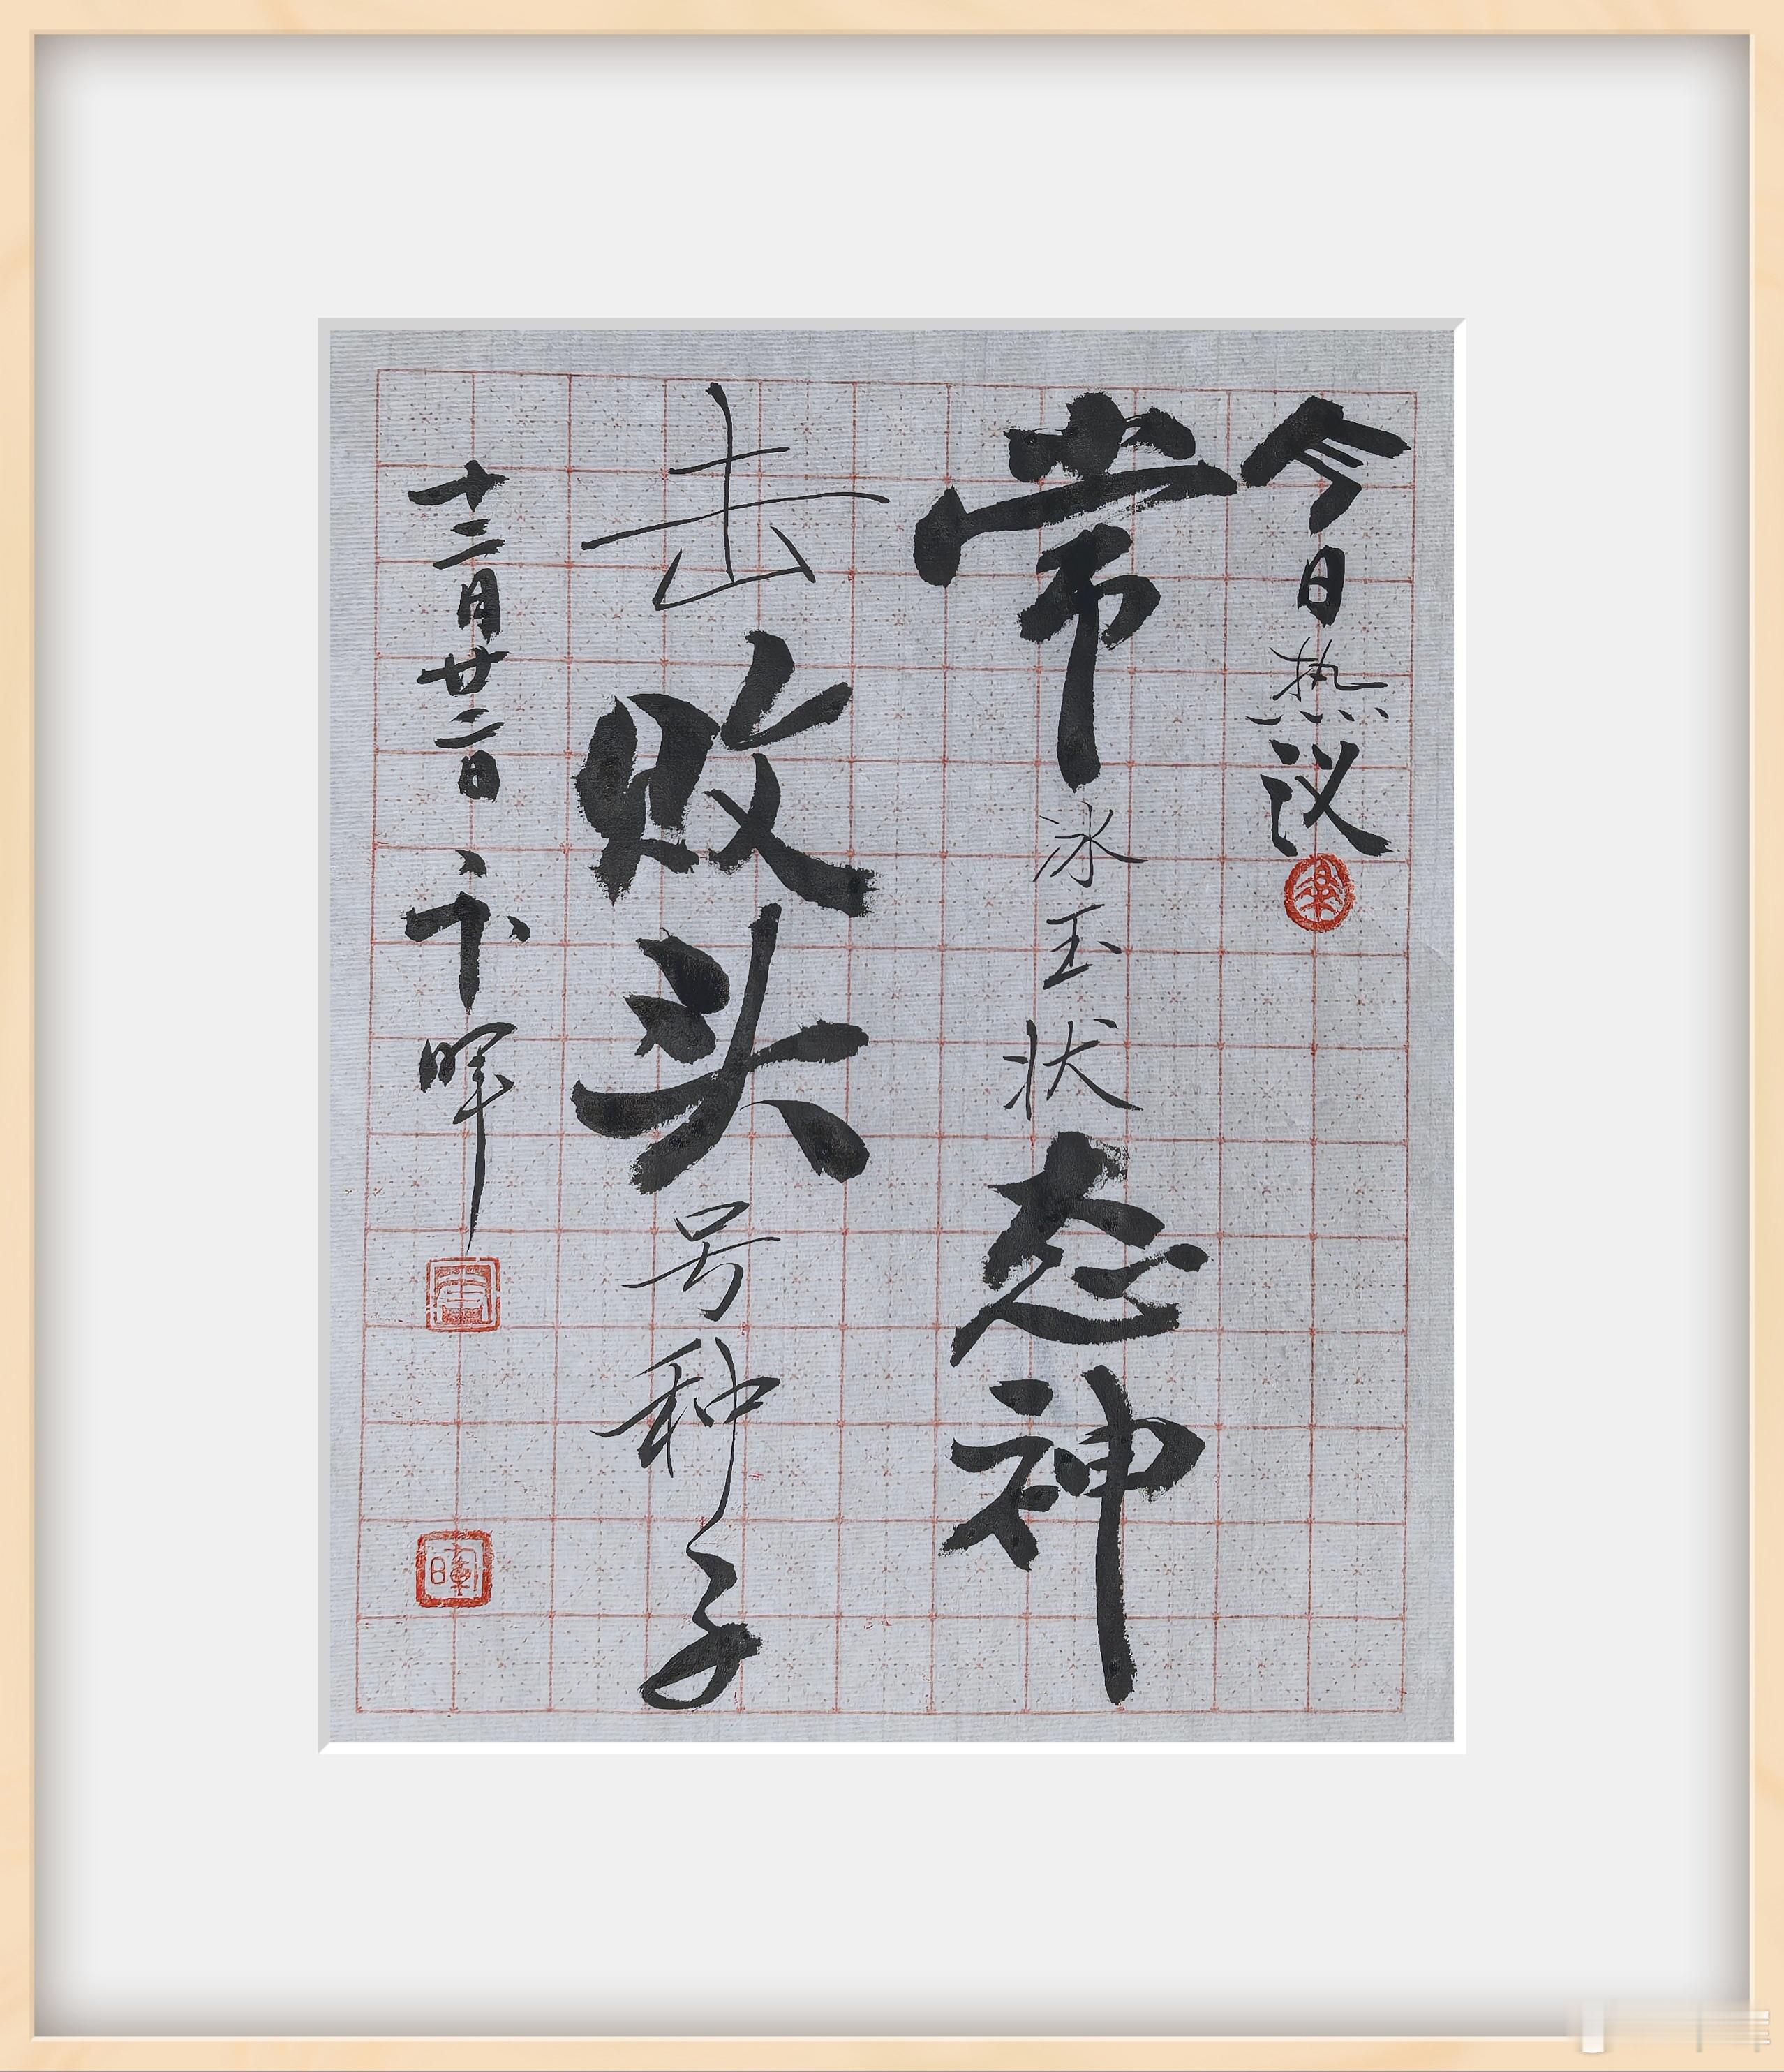 今日热议
常冰玉状态神
击败头号种子
十二月廿二日 卞晖
晖